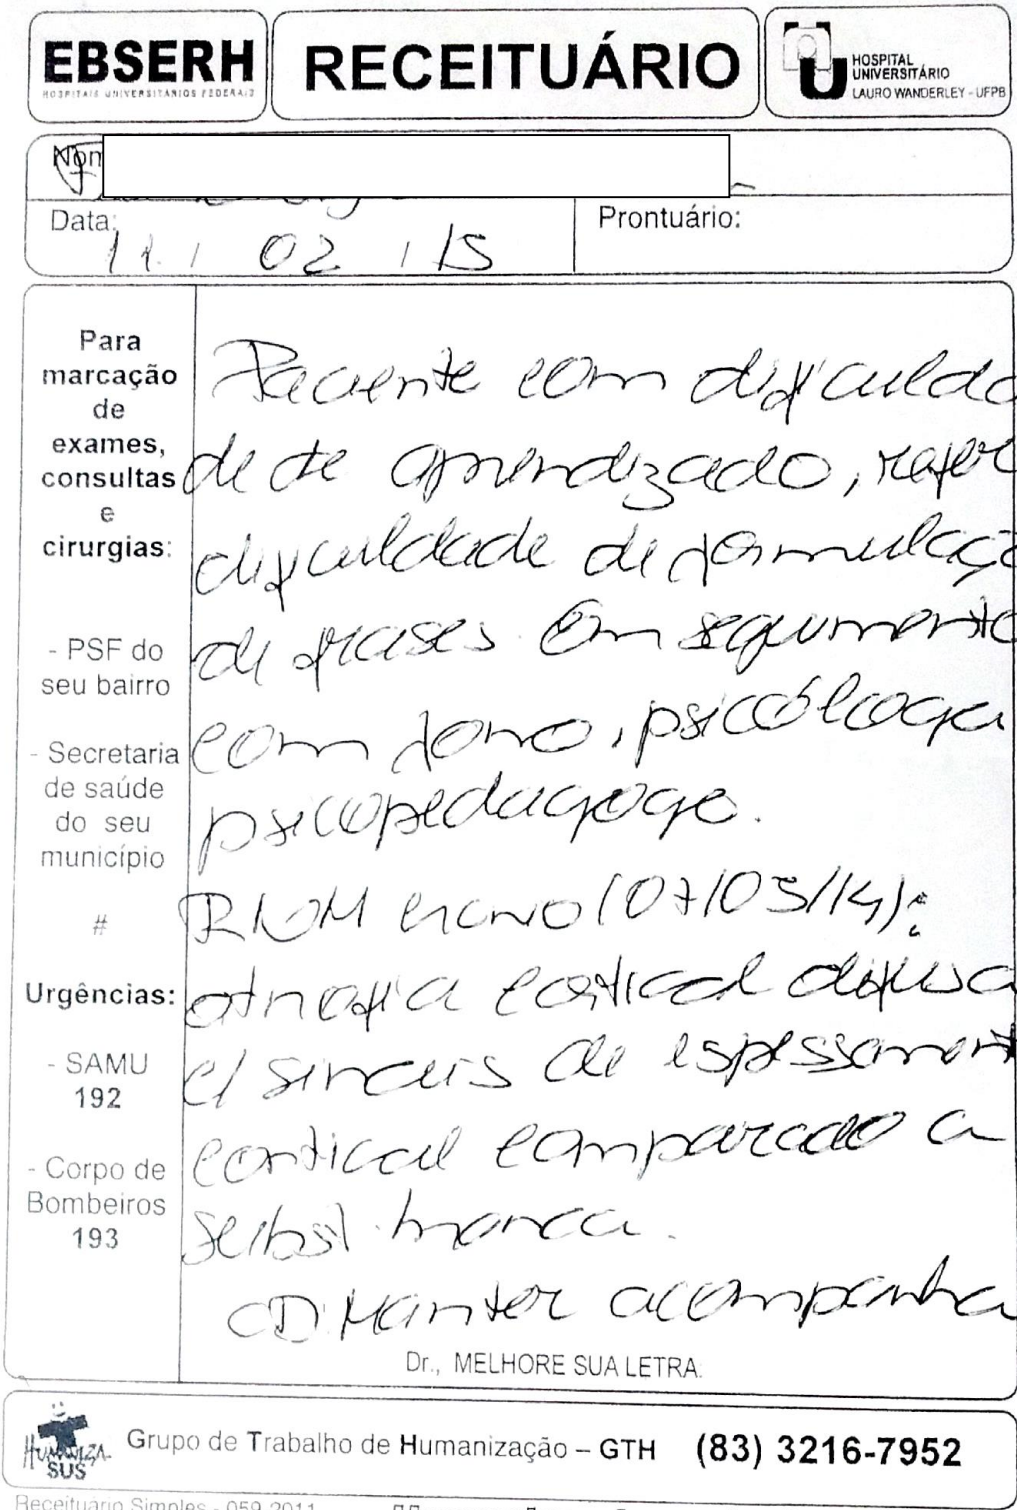 EBSERH
HOSPITAIS UNIVERSITÁRIOS FEDERAIS
RECEITUÁRIO
HOSPITAL
UNIVERSITÁRIO
LAURO WANDERLEY - UFPB
Nom
Data:
11 / 02 / 15
Prontuário:
Para
marcação
de
exames,
consultas
e
cirurgias:
- PSF do
seu bairro
- Secretaria
de saúde
do seu
município
#
Urgências:
- SAMU
192
- Corpo de
Bombeiros
193
Paciente com dificulda
de de aprendizado, refer
dificuldade de formulaçã
de frases. Em seguimento
com fono, psicóloga
psicopedagoga.
RNM crânio (07/03/14):
atrofia cortical difusa
c/ sinais de espessament
cortical comparado a
subst. branca.
CD: Manter acompanha
Dr., MELHORE SUA LETRA.
HUMANIZA
SUS
Grupo de Trabalho de Humanização – GTH (83) 3216-7952
Receituário Simples - 059.2011